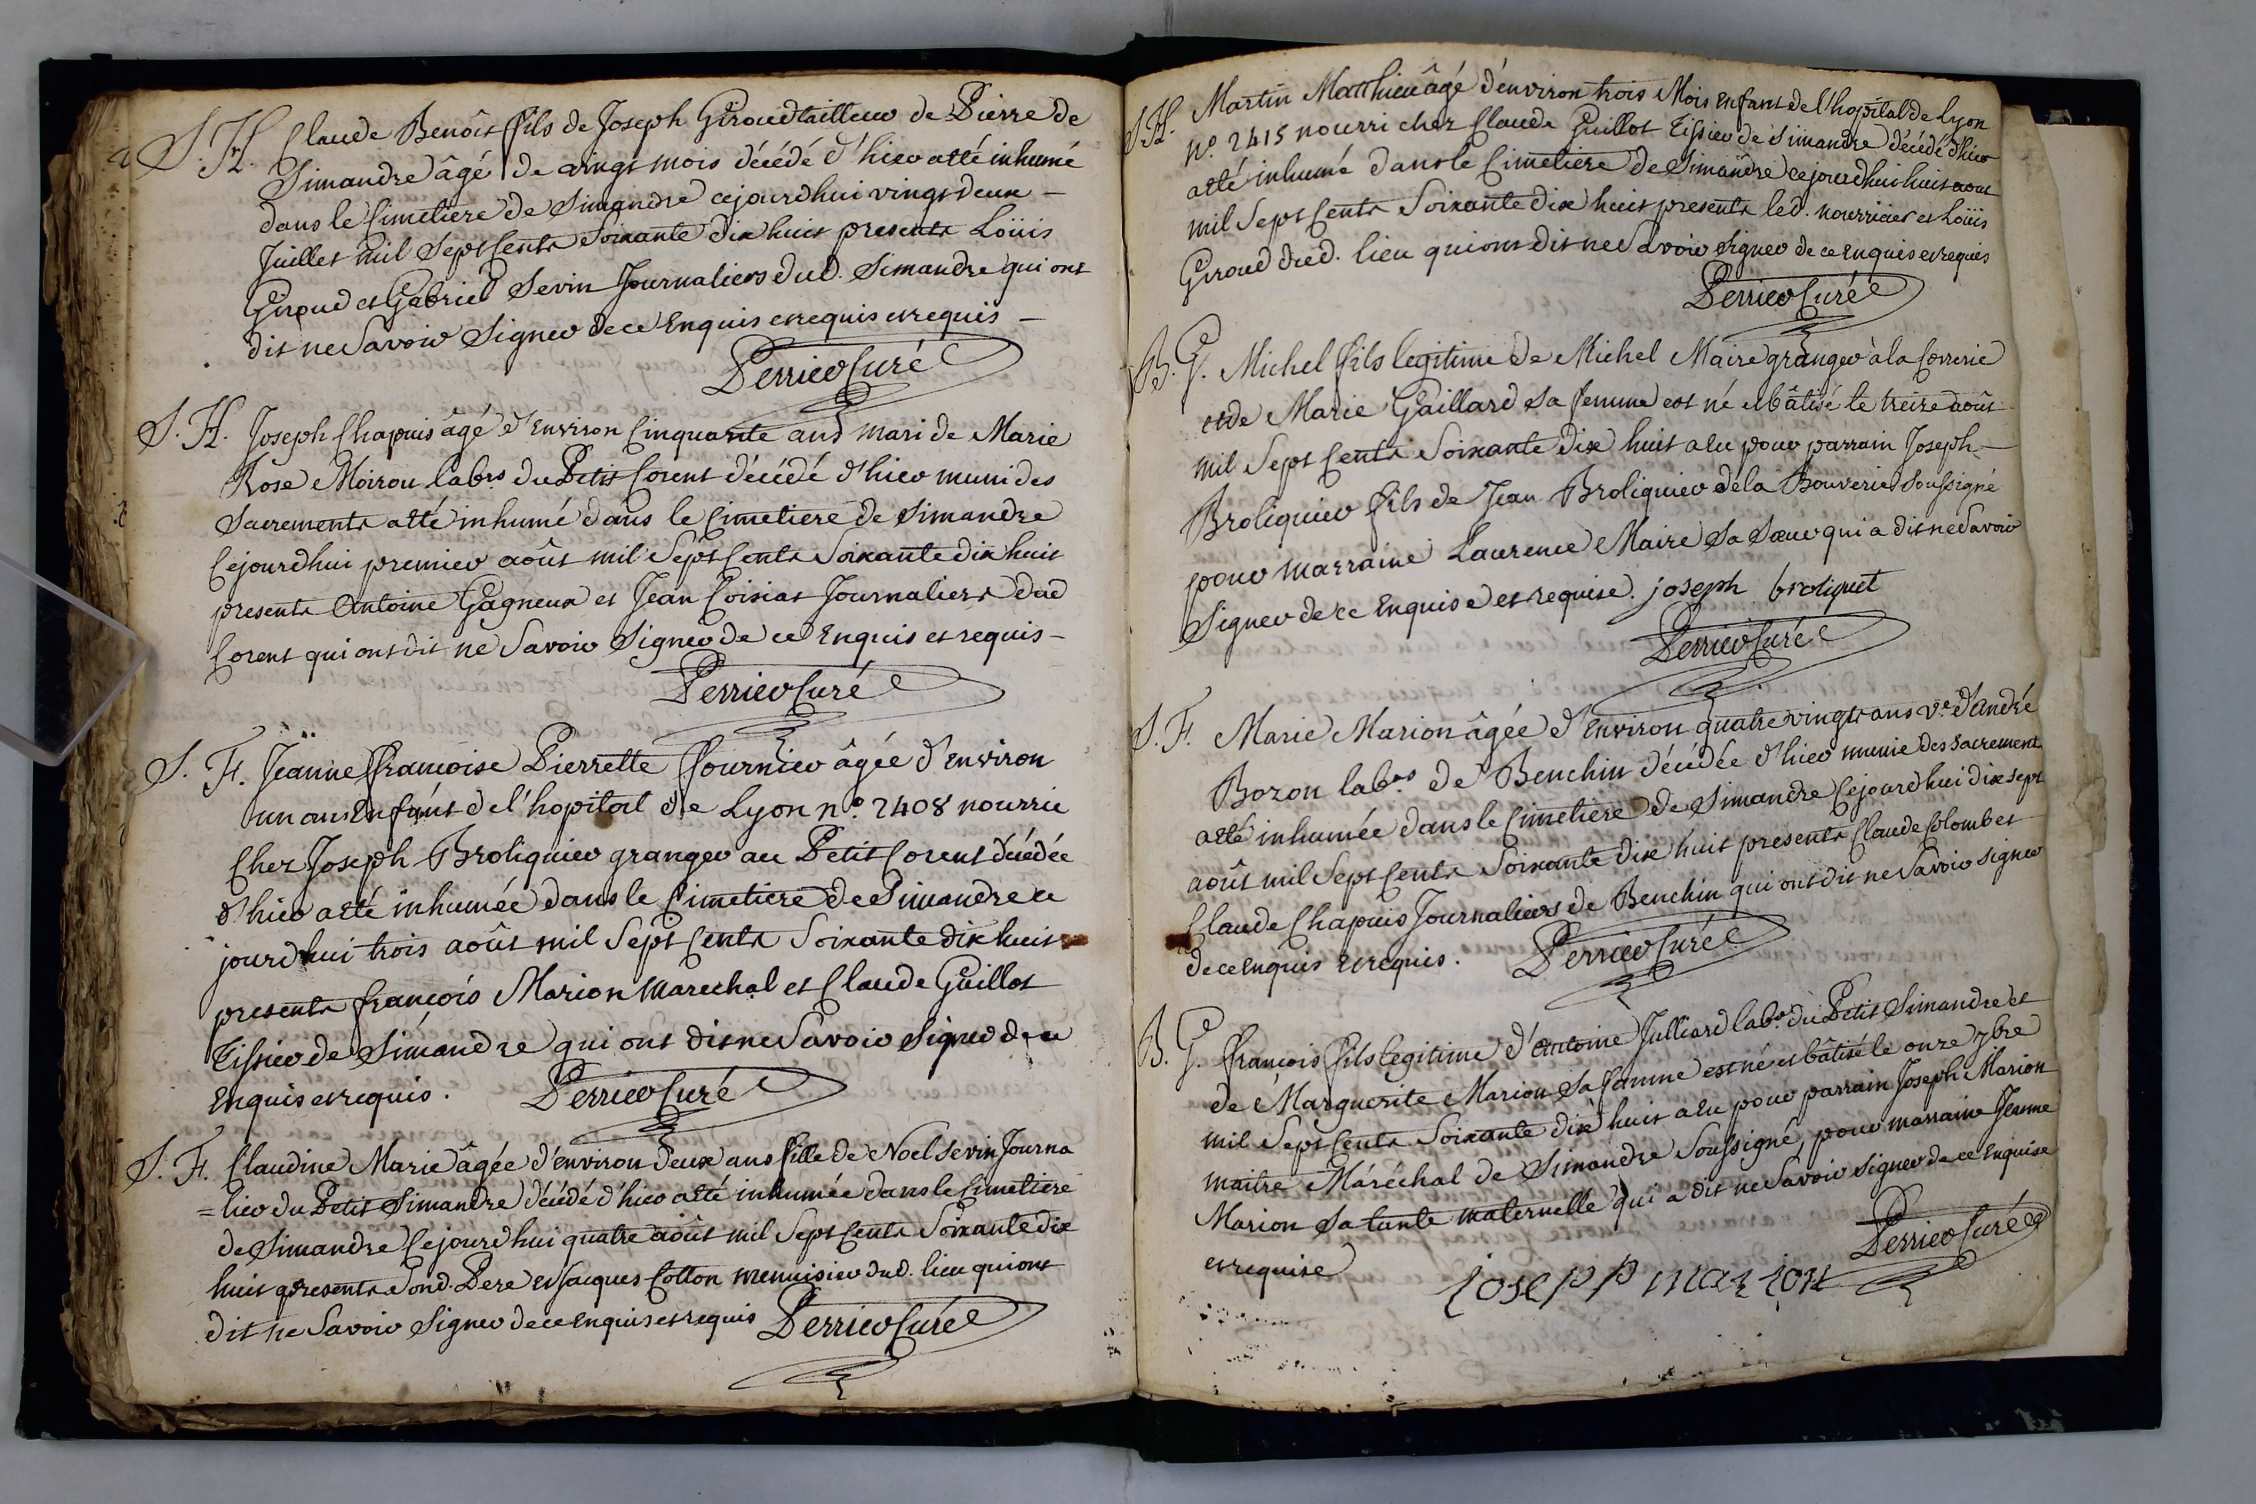 S. H. Claude Benôit fils de Joseph Giroud tailleur de Pierre de
Simandre âgé de vingt mois décédé d'hier a été inhumé
dans le Cimetiere de Simandre cejourdhui vingt deux –
Juillet mil Sept Cents Soixante dix huit presents Loüis
Giroud et Gabriel Sevin Journaliers dud. Simandre qui ont
dit ne Savoir Signer de ce Enquis et requis et requis –
Perrier Curé
S. H. Joseph Chapuis âgé d'Environ Cinquante ans mari de Marie
Rose Moirou labrs du Petit Corent décédé d'hier muni des
Sacrements a été inhumé dans le Cimetiere de Simandre
Cejourdhui premier août mil Sept Cents Soixante dix huit
presents Antoine Gagneux et Jean Coisiat Journaliers dud
Corent qui ont dit ne Savoir Signer de ce Enquis et requis –
Perrier Curé
S. F. Jeanne françoise Pierrette fournier âgée d'Environ
un an Enfant de l'hopital de Lyon n.º 2408 nourrie
Chez Joseph Broliquier granger au Petit Corent décédée
d'hier a été inhumée dans le Cimetiere de Simandre ce
jourdhui trois août mil Sept Cents Soixante dix huit
presents françois Marion Marechal et Claude Guillot
Tissier de Simandre qui ont dit ne Savoir Signer de ce
Enquis et requis. Perrier Curé
S. F. Claudine Marie âgée d'environ deux ans fille de Noel Sevin Journa
= lier du Petit Simandre décédé d'hier a été inhumée dans le Cimetiere
de Simandre Cejourdhui quatre août mil Sept Cents Soixante dix
huit presents Sond. Pere et Jacques Cotton menuisier dud. lieu qui ont
dit ne Savoir Signer de ce enquis et requis Perrier Curé
S. H. Martin Matthieu âgé d'environ trois Mois enfant de l'hopital de Lyon
Nº. 2415 nourri chez Claude Guillot Tissier de Simandre décédé d'hier
a été inhumé dans le Cimetiere de Simandre cejourdhui huit aout
mil Sept Cents Soixante dix huit presents led. nourricier et Loüis
Giroud dud. lieu qui ont dit ne Savoir Signer de ce enquis et requis
Perrier Curé
B. G. Michel fils legitime de Michel Maire granger à la Correrie
et de Marie Gaillard Sa femme est né et bâtisé le treize août
mil Sept Cents Soixante dix huit a eu pour parrain Joseph –
Broliquier fils de Jean Broliquier de la Bouverie Soussigné
pour marraine Laurence Maire Sa Sœur qui a dit ne Savoir
Signer de ce Enquise et requise. joseph broliquet
Perrier Curé
S. F. Marie Marion âgée d'Environ quatre vingts ans vе d'André
Bozon labrs de Benchin décédée d'hier munie des Sacrements
a été inhumée dans le Cimetiere de Simandre Cejourdhui dix sept
août mil Sept Cents Soixante dix huit presents Claude Colomb et
Claude Chapuis Journaliers de Benchin qui ont dit ne Savoir Signer
de ce enquis et requis. Perrier Curé
B. G. françois fils legitime d'Antoine Julliard labr. du Petit Simandre et
de Marguerite Marion Sa famme est né et bâtisé le onze 7bre
mil Sept Cents Soixante dix huit a eu pour parrain Joseph Marion
maitre Maréchal de Simandre Soussigné, pour marraine Jeanne
Marion Sa tante maternelle qui a dit ne Savoir Signer de ce Enquise
et requise
Perrier Curé
joseph marion